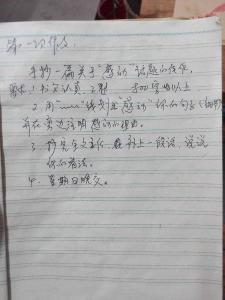 第一次作文
手抄一篇关于“感动”话题的佳作,
要求:1. 书写认真、工整 500字以上
2. 用“﹏﹏”线划出“感动”你的句子(细节)
并在旁边注明感动的理由。
3. 抄完全文之后,在补上一段话,说说
你的看法。
4. 星期日晚交。